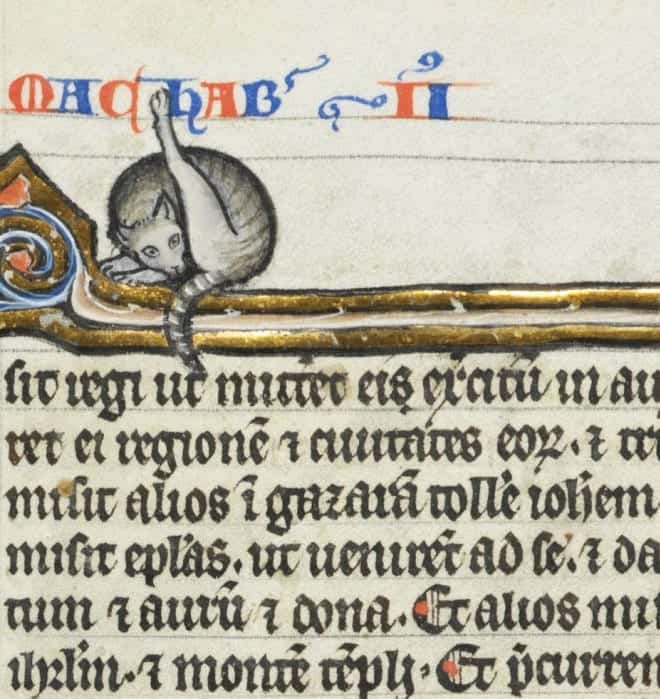 MACHAB' II
sit regi ut mitteret eis exercitū in au
ret ei regionē ⁊ ciuitates eoꝝ. ⁊
misit alios ī gazarā tolle' ioh'em
misit ep'las. ut ueniret ad se. ⁊ da
tum ⁊ aurū ⁊ dona. Et alios mi
ihrl'm. ⁊ montē tēpli. Et p̄curren